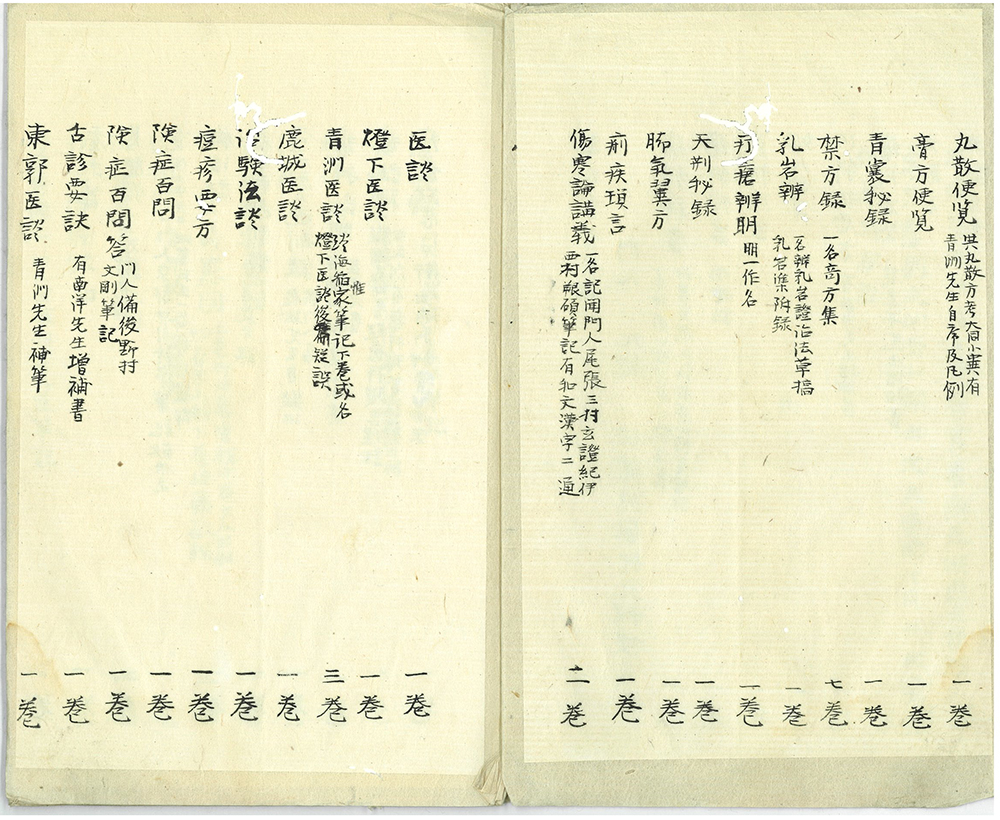 丸散便覧 與丸散方考大同小異有青洲先生自序及凡例 一巻
膏方便覧 一巻
青嚢秘録 一巻
禁方録 一名奇方集 七巻
乳岩辨 一名辨乳岩證治法草稿 乳岩準附録 一巻
疔瘡辨明 明一作名 一巻
天刑秘録 一巻
脚氣翼方 一巻
痢疾瑣言 一巻
傷寒論講義 一名記聞門人尾張三村玄證紀伊西村 碩筆記有和文漢字二通 二巻
医談 一巻
燈下医談 一巻
青洲医談 燈下医談後篇 三巻
鹿城医談 一巻
治験法談 一巻
痘疹要方 一巻
険症百問 一巻
険症百問答 門人備後野村文剛筆記 一巻
古診要訣 有南洋先生増補書 一巻
東郭医談 青洲先生補筆 一巻